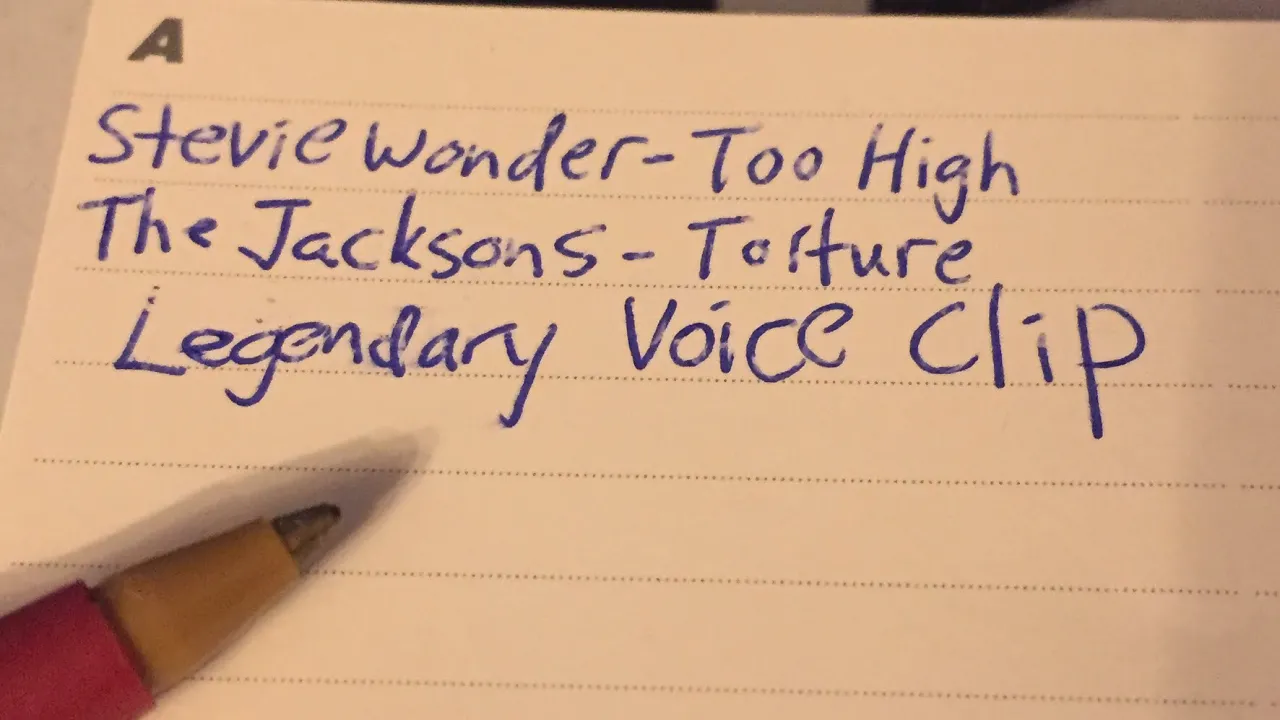 A
Stevie Wonder - Too High
The Jacksons - Torture
Legendary Voice Clip